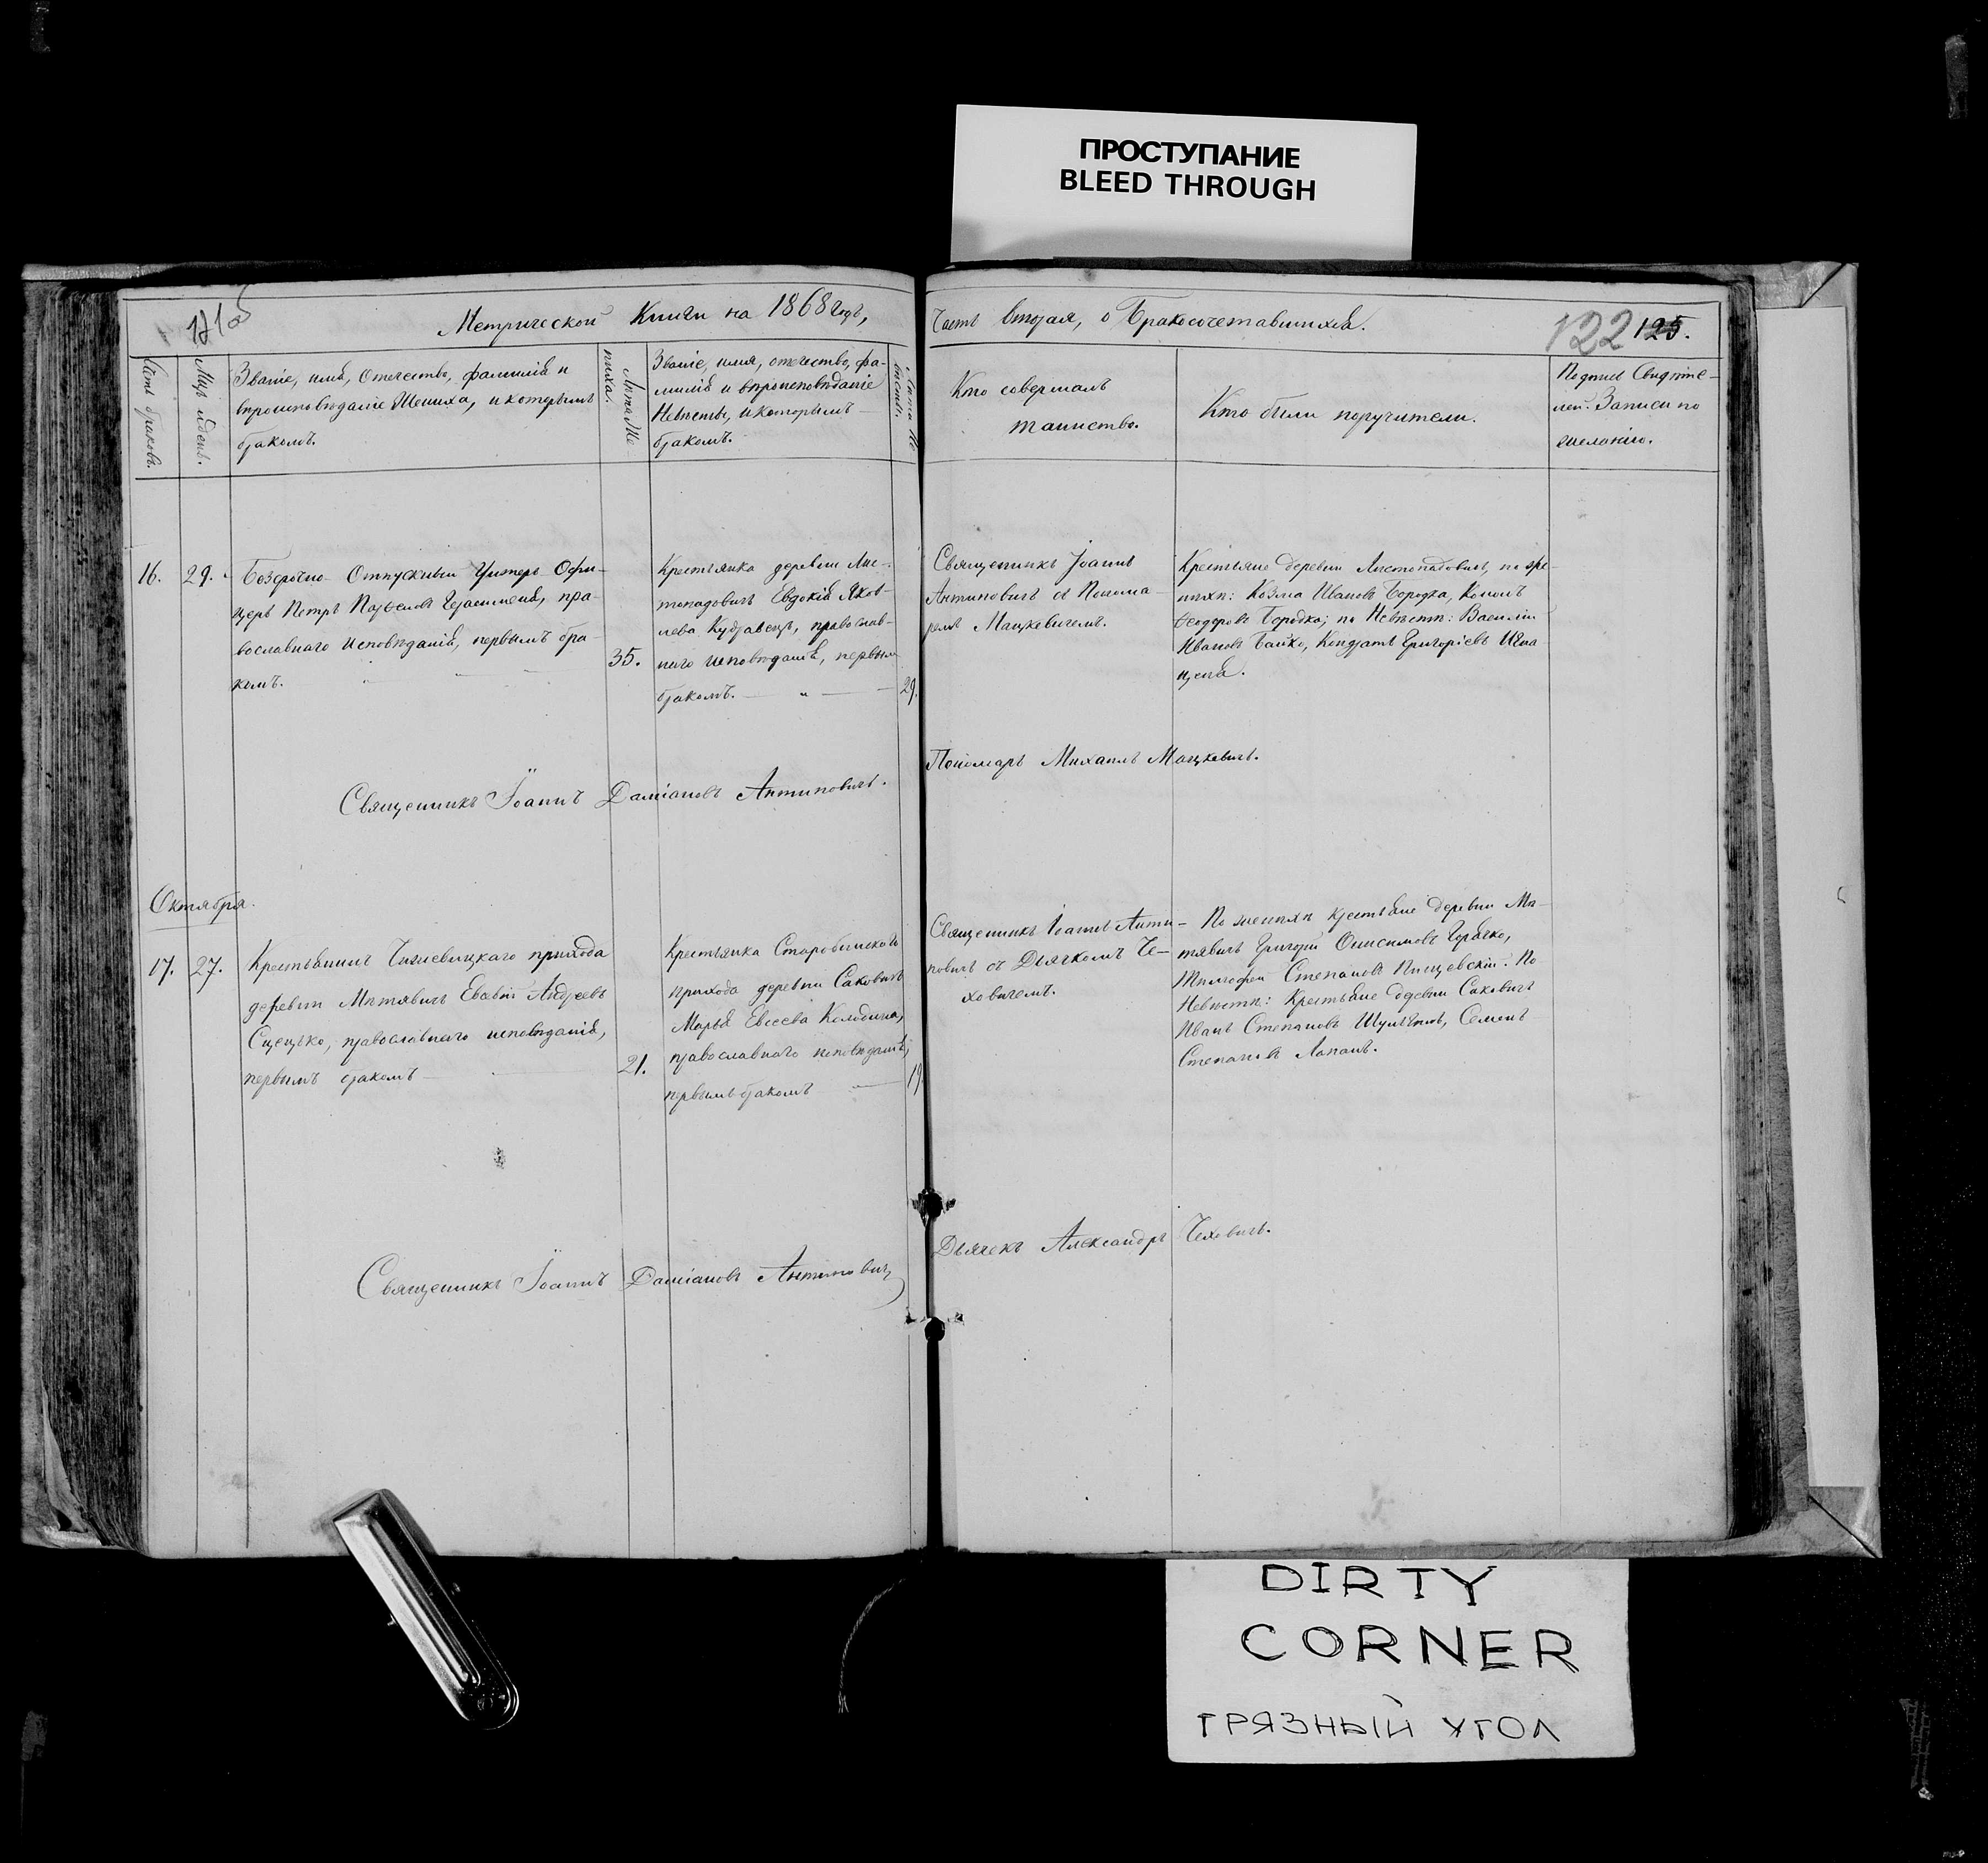 ПРОСТУПАНИЕ
BLEED THROUGH
Метрической Книги на 1868 годъ,
Часть вторая, о Бракосочетавшихся.
122 125.
Счетъ браковъ.
Мцъ и день.
Званіе, имя, отечество, фамилія и
вѣроисповѣданіе Жениха, и которымъ
бракомъ.
Лѣта Же-
ниха.
Званіе, имя, отечество, фа-
милія и вѣроисповѣданіе
Невѣсты, и которымъ
бракомъ.
Лѣта Не
вѣсты.
Кто совершалъ
таинство.
Кто были поручители.
Подпись Свидѣте-
лей. Записи по
желанію.
16.
29.
Безсрочно-Отпускный Унтеръ-Офи-
церъ Петръ Павловъ Герасименя, пра-
вославнаго исповѣданія, первымъ бра-
комъ.
35.
Крестьянка деревни Лис-
топадовичъ Евдокія Яков-
лева Кудравецъ, православ-
наго исповѣданія, первым
бракомъ.
29.
Священникъ Іоаннъ
Антиповичъ съ Понома-
ремъ Мацкевичемъ.
Крестьяне деревни Листопадовичъ, по же-
нихѣ: Козма Ивановъ Бородка, Кононъ
Ѳеодоровъ Бородка; по Невѣстѣ: Василій
Ивановъ Байко, Кондратъ Григоріевъ Игна-
щеня.
Священникъ Іоаннъ Даміановъ Антиповичъ.
Пономарь Михаилъ Мацкевичъ.
Октября.
17.
27.
Крестьянинъ Чижевицкаго прихода
деревни Мѣтявичъ Андреевъ
православнаго исповѣданія,
первымъ бракомъ
21.
Крестьянка Старобинскаго
прихода деревни Саковичъ
Марья Евсеева
православнаго исповѣданія,
первымъ бракомъ
19
Священникъ Іоаннъ Анти-
повичъ съ Дьячкомъ Че-
ховичемъ.
По женихѣ крестьяне деревни Мѣ-
тявичъ Григорій Онисимовъ Горбачко,
Тимофей Степановъ По
Невѣстѣ: Крестьяне деревни Саковичъ
Иванъ Степановъ Семенъ
Степановъ Лапанъ.
Священникъ Іоаннъ Даміановъ Антиповичъ
Дьячекъ Александръ Чеховичъ.
DIRTY
CORNER
ГРЯЗНЫЙ УГОЛ